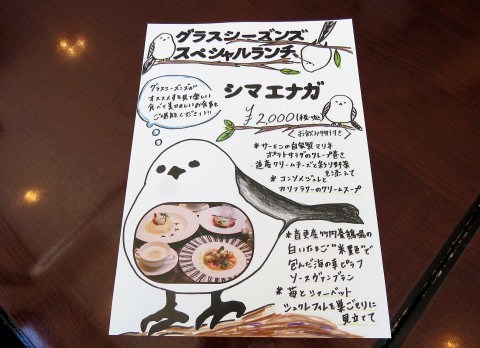 グラスシーズンズ
スペシャルランチ
グラスシーズンズが
オススメする見て楽しい
食べて美味しいお食事を
ご堪能ください!!
シマエナガ
¥2,000(税込)
〈お飲み物付き〉
＊サーモンの自家製マリネ
ポテトサラダのクレープ巻き
道産クリームチーズと彩り野菜
を添えて
＊コンソメジュレと
カリフラワーのクリームスープ
＊音更産竹内養鶏場の
白いたまご"米艶"で
包んだ海の幸ピラフ
ソースヴァンブラン
＊苺とシャーベット
シュクレフィレを巣ごもりに
見立てて